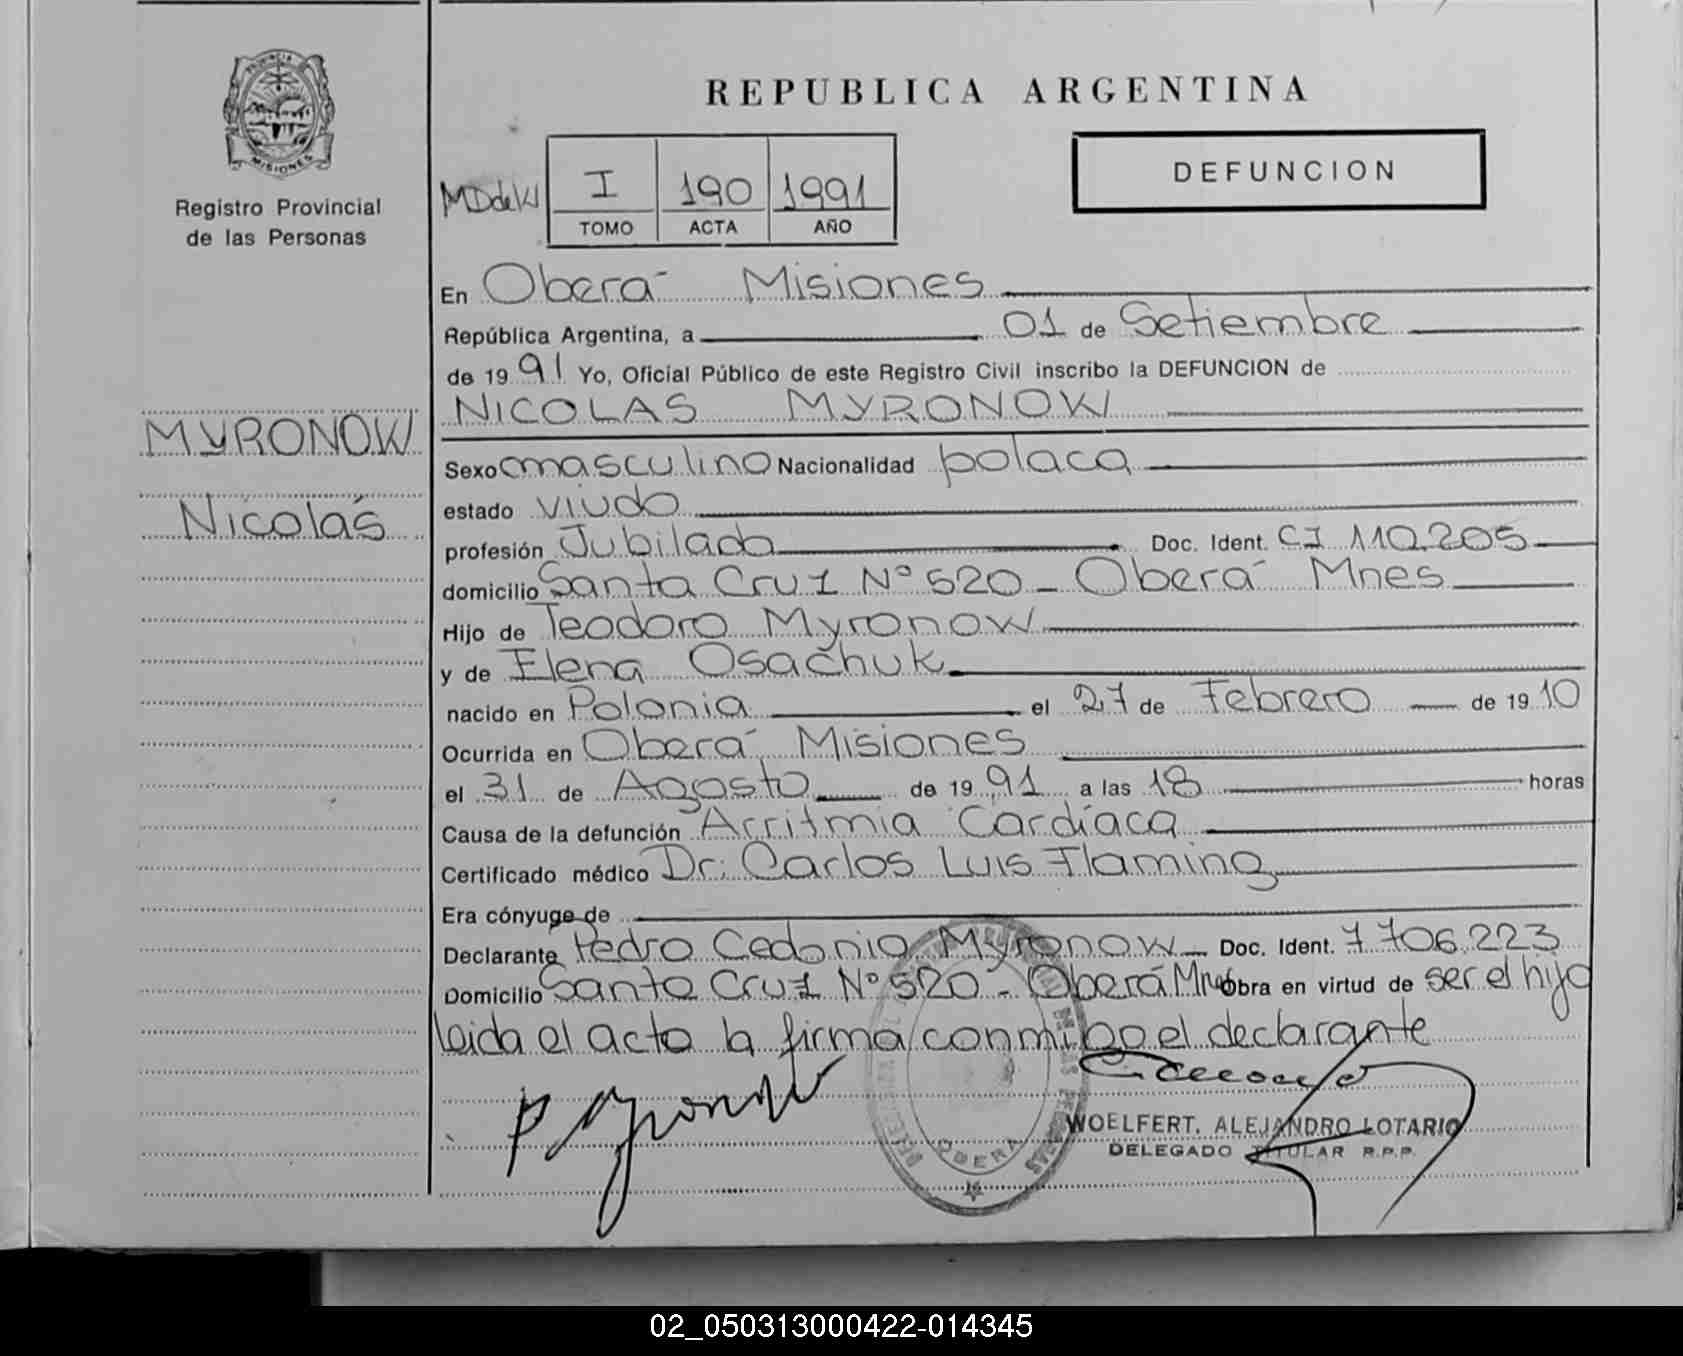 PROVINCIA
MISIONES
Registro Provincial
de las Personas
MYRONOW
Nicolás
REPUBLICA ARGENTINA
DEFUNCION
I 190 1991
TOMO ACTA AÑO
En Oberá Misiones
República Argentina, a 01 de Setiembre
de 1991 Yo, Oficial Público de este Registro Civil inscribo la DEFUNCION de
NICOLAS MYRONOW
Sexo masculino Nacionalidad polaca
estado viudo
profesión Jubilado Doc. Ident. CI 110.205
domicilio Santa Cruz Nº 520 - Oberá Mnes
Hijo de Teodoro Myronow
y de Elena Osachuk
nacido en Polonia el 27 de Febrero de 1910
Ocurrida en Oberá Misiones
el 31 de Agosto de 1991 a las 18 horas
Causa de la defunción Arritmia Cardíaca
Certificado médico Dr. Carlos Luis Flaming
Era cónyuge de
Declarante Pedro Cedonio Myronow Doc. Ident. 7.706.223
Domicilio Santa Cruz Nº 520 - Oberá Mnes Obra en virtud de ser el hijo
leida el acta la firma conmigo el declarante
OBERA
WOELFERT, ALEJANDRO LOTARIO
DELEGADO TITULAR R.P.P.
02_050313000422-014345